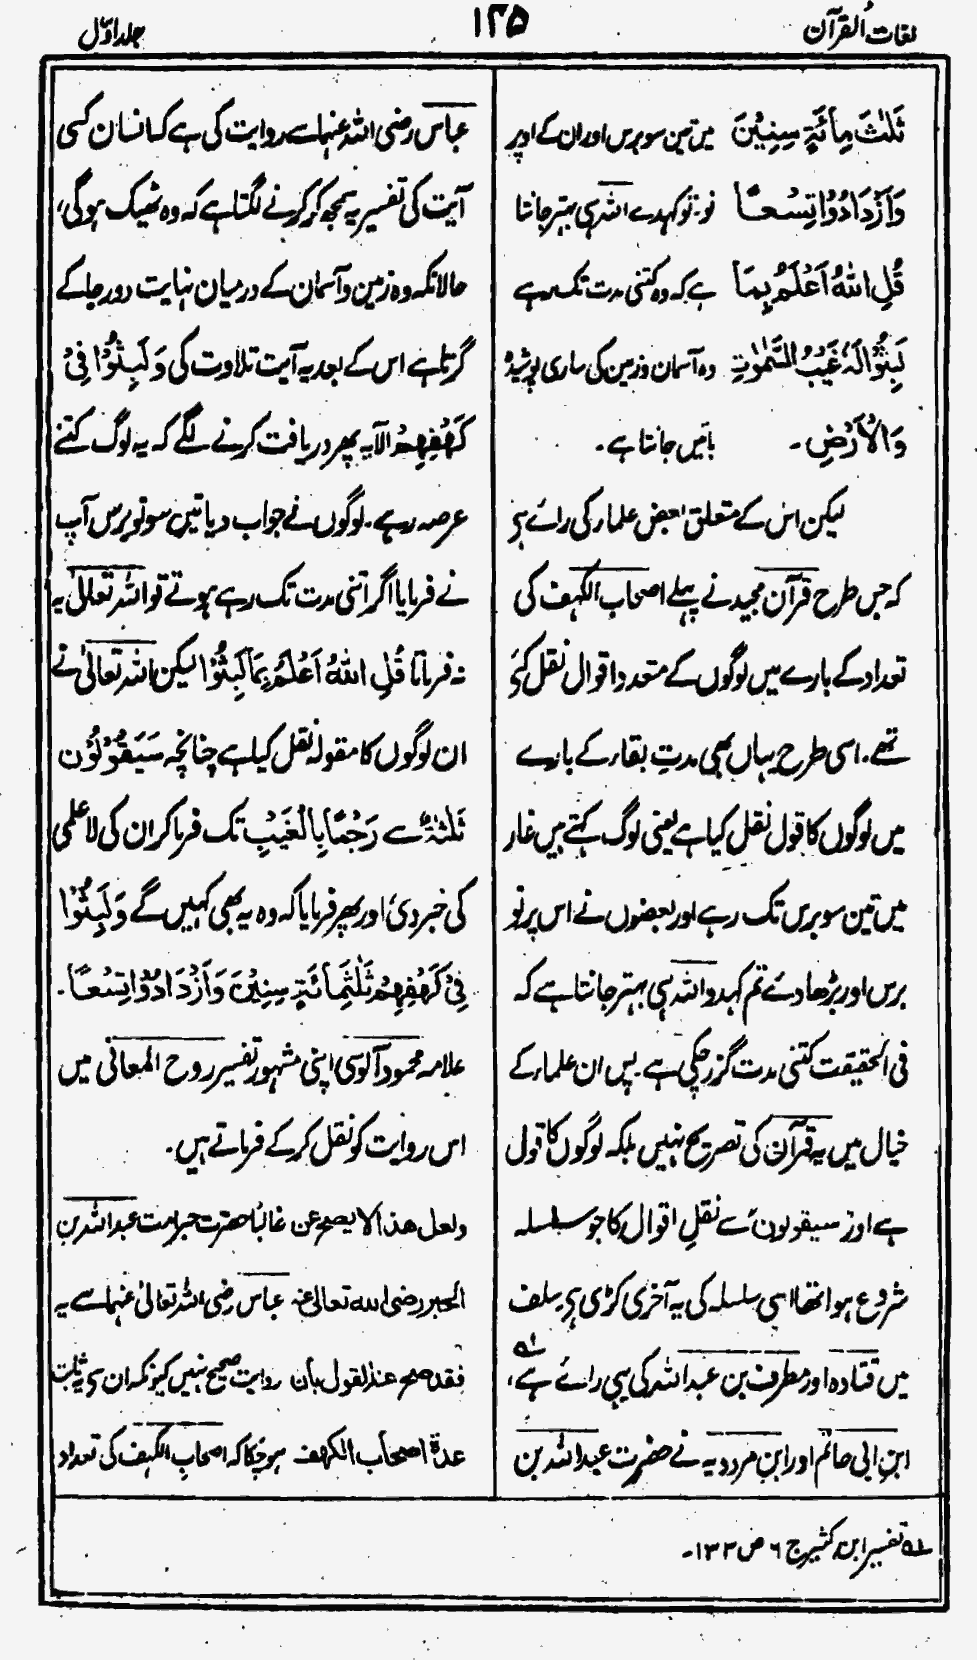 لغات القرآن
۱۲۵
جلد اوّل
ثَلٰثَ مِائَةٍ سِنِيْنَ میں تین سو برس اور ان کے اوپر
وَازْدَادُوْا تِسْعًا نو۔ تو کہدے اللہ ہی بہتر جانتا
قُلِ اللّٰهُ اَعْلَمُ بِمَا ہے کہ وہ کتنی مدت تک رہے
لَبِثُوْا لَهٗ غَيْبُ السَّمٰوٰتِ وہ آسمان و زمین کی ساری پوشیدہ
وَالْاَرْضِ۔ باتیں جانتا ہے۔
لیکن اس کے متعلق بعض علماء کی رائے ہے
کہ جس طرح قرآن مجید نے پہلے اصحاب الکہف کی
تعداد کے بارے میں لوگوں کے متعدد اقوال نقل کئے
تھے۔ اسی طرح یہاں بھی مدتِ بقاء کے بارے
میں لوگوں کا قول نقل کیا ہے یعنی لوگ کہتے ہیں غار
میں تین سو برس تک رہے اور بعضوں نے اس پر نو
برس اور بڑھا دئے تم کہدو اللہ ہی بہتر جانتا ہے کہ
فی الحقیقت کتنی مدت گزر چکی ہے۔ پس ان علماء کے
خیال میں یہ قرآن کی تصریح نہیں بلکہ لوگوں کا قول
ہے اور سیقولون سے نقلِ اقوال کا جو سلسلہ
شروع ہوا تھا اسی سلسلہ کی یہ آخری کڑی ہے۔ سلف
میں قتادہ اور مطرف بن عبد اللہ کی یہی رائے ہے لہ،
ابن ابی حاتم اور ابن مردویہ نے حضرت عبد اللہ بن
عباس رضی اللہ عنہما سے روایت کی ہے کہ انسان کسی
آیت کی تفسیر یہ سمجھ کر کرنے لگتا ہے کہ وہ ٹھیک ہوگی،
حالانکہ وہ زمین و آسمان کے درمیان نہایت دور جا کے
گرتا ہے اس کے بعد یہ آیت تلاوت کی وَلَبِثُوْا فِیْ
كَهْفِهِمْ الآیہ پھر دریافت کرنے لگے کہ یہ لوگ کتنے
عرصہ رہے۔ لوگوں نے جواب دیا تین سو نو برس آپ
نے فرمایا اگر اتنی مدت تک رہے ہوتے تو اللہ تعالیٰ یہ
نہ فرماتا قُلِ اللّٰهُ اَعْلَمُ بِمَا لَبِثُوْا لیکن اللہ تعالیٰ نے
ان لوگوں کا مقولہ نقل کیا ہے چنانچہ سَيَقُوْلُوْنَ
ثَلٰثَةٌ سے رَجْمًا بِالْغَيْبِ تک فرما کر ان کی لاعلمی
کی خبر دی، اور پھر فرمایا کہ وہ یہ بھی کہیں گے وَلَبِثُوْا
فِیْ كَهْفِهِمْ ثَلٰثَمِائَةٍ سِنِيْنَ وَازْدَادُوْا تِسْعًا۔
علامہ محمود آلوسی اپنی مشہور تفسیر روح المعانی میں
اس روایت کو نقل کر کے فرماتے ہیں۔
ولعل هذا لا یصح عن غالباً حضرت حبر امت عبد اللہ بن
الحبر رضی الله تعالی عنه عباس رضی اللہ تعالیٰ عنہما سے یہ
فقد صح عنه القول بأن روایت صحیح نہیں کیونکہ ان سے ثابت
عدة اصحاب الکهف ہو چکا کہ اصحاب الکہف کی تعداد
لہ تفسیر ابن کثیر ج ۶ ص ۱۳۳۔